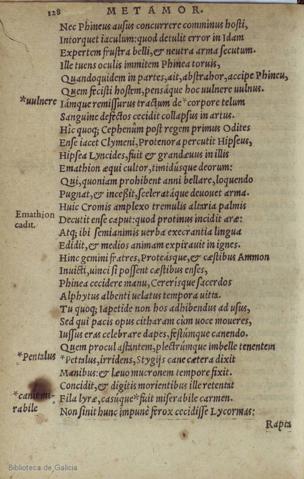 128 METAMOR.
Nec Phineus ausus concurrere comminus hosti,
Intorquet iaculum: quod detulit error in Idam
Expertem frustra belli, & neutra arma secutum.
Ille tuens oculis immitem Phinea toruis,
Quandoquidem in partes, ait, abstrahor, accipe Phineu,
Quem fecisti hostem, pensaque hoc uulnere uulnus.
*uulnere Iamque remissurus tractum de *corpore telum
Sanguine defectos cecidit collapsus in artus.
Hic quoq; Cephenum post regem primus Odites
Ense iacet Clymeni, Protenora percutit Hipseus,
Hipsea Lyncides, fuit & grandæuus in illis
Emathion æqui cultor, timidusque deorum:
Qui, quoniam prohibent anni bellare, loquendo
Pugnat, & incessit, scelerataque deuouet arma.
Huic Cromis amplexo tremulis altaria palmis
Emathion Decutit ense caput: quod protinus incidit aræ:
cadit. Atq; ibi semianimis uerba execrantia lingua
Edidit, & medios animam expirauit in ignes.
Hinc gemini fratres, Proteasque, & cæstibus Ammon
Inuicti, uinci si possent cæstibus enses,
Phinea cecidere manu, Cererisque sacerdos
Alphytus albenti uelatus tempora uitta.
Tu quoq; Iapetide non hos adhibendus ad usus,
Sed qui pacis opus citharam cum uoce moueres,
Iussus eras celebrare dapes, festumque canendo.
Quem procul astantem, plectrumque imbelle tenentem
*Pentalus *Petalus, irridens, Stygijs cane cætera dixit
Manibus: & læuo mucronem tempore fixit.
Concidit, & digitis morientibus ille retentat
*canit mirabile Fila lyræ, casuque *fuit miserabile carmen.
Non sinit hunc impune ferox cecidisse Lycormas:
Rapta
Biblioteca de Galicia